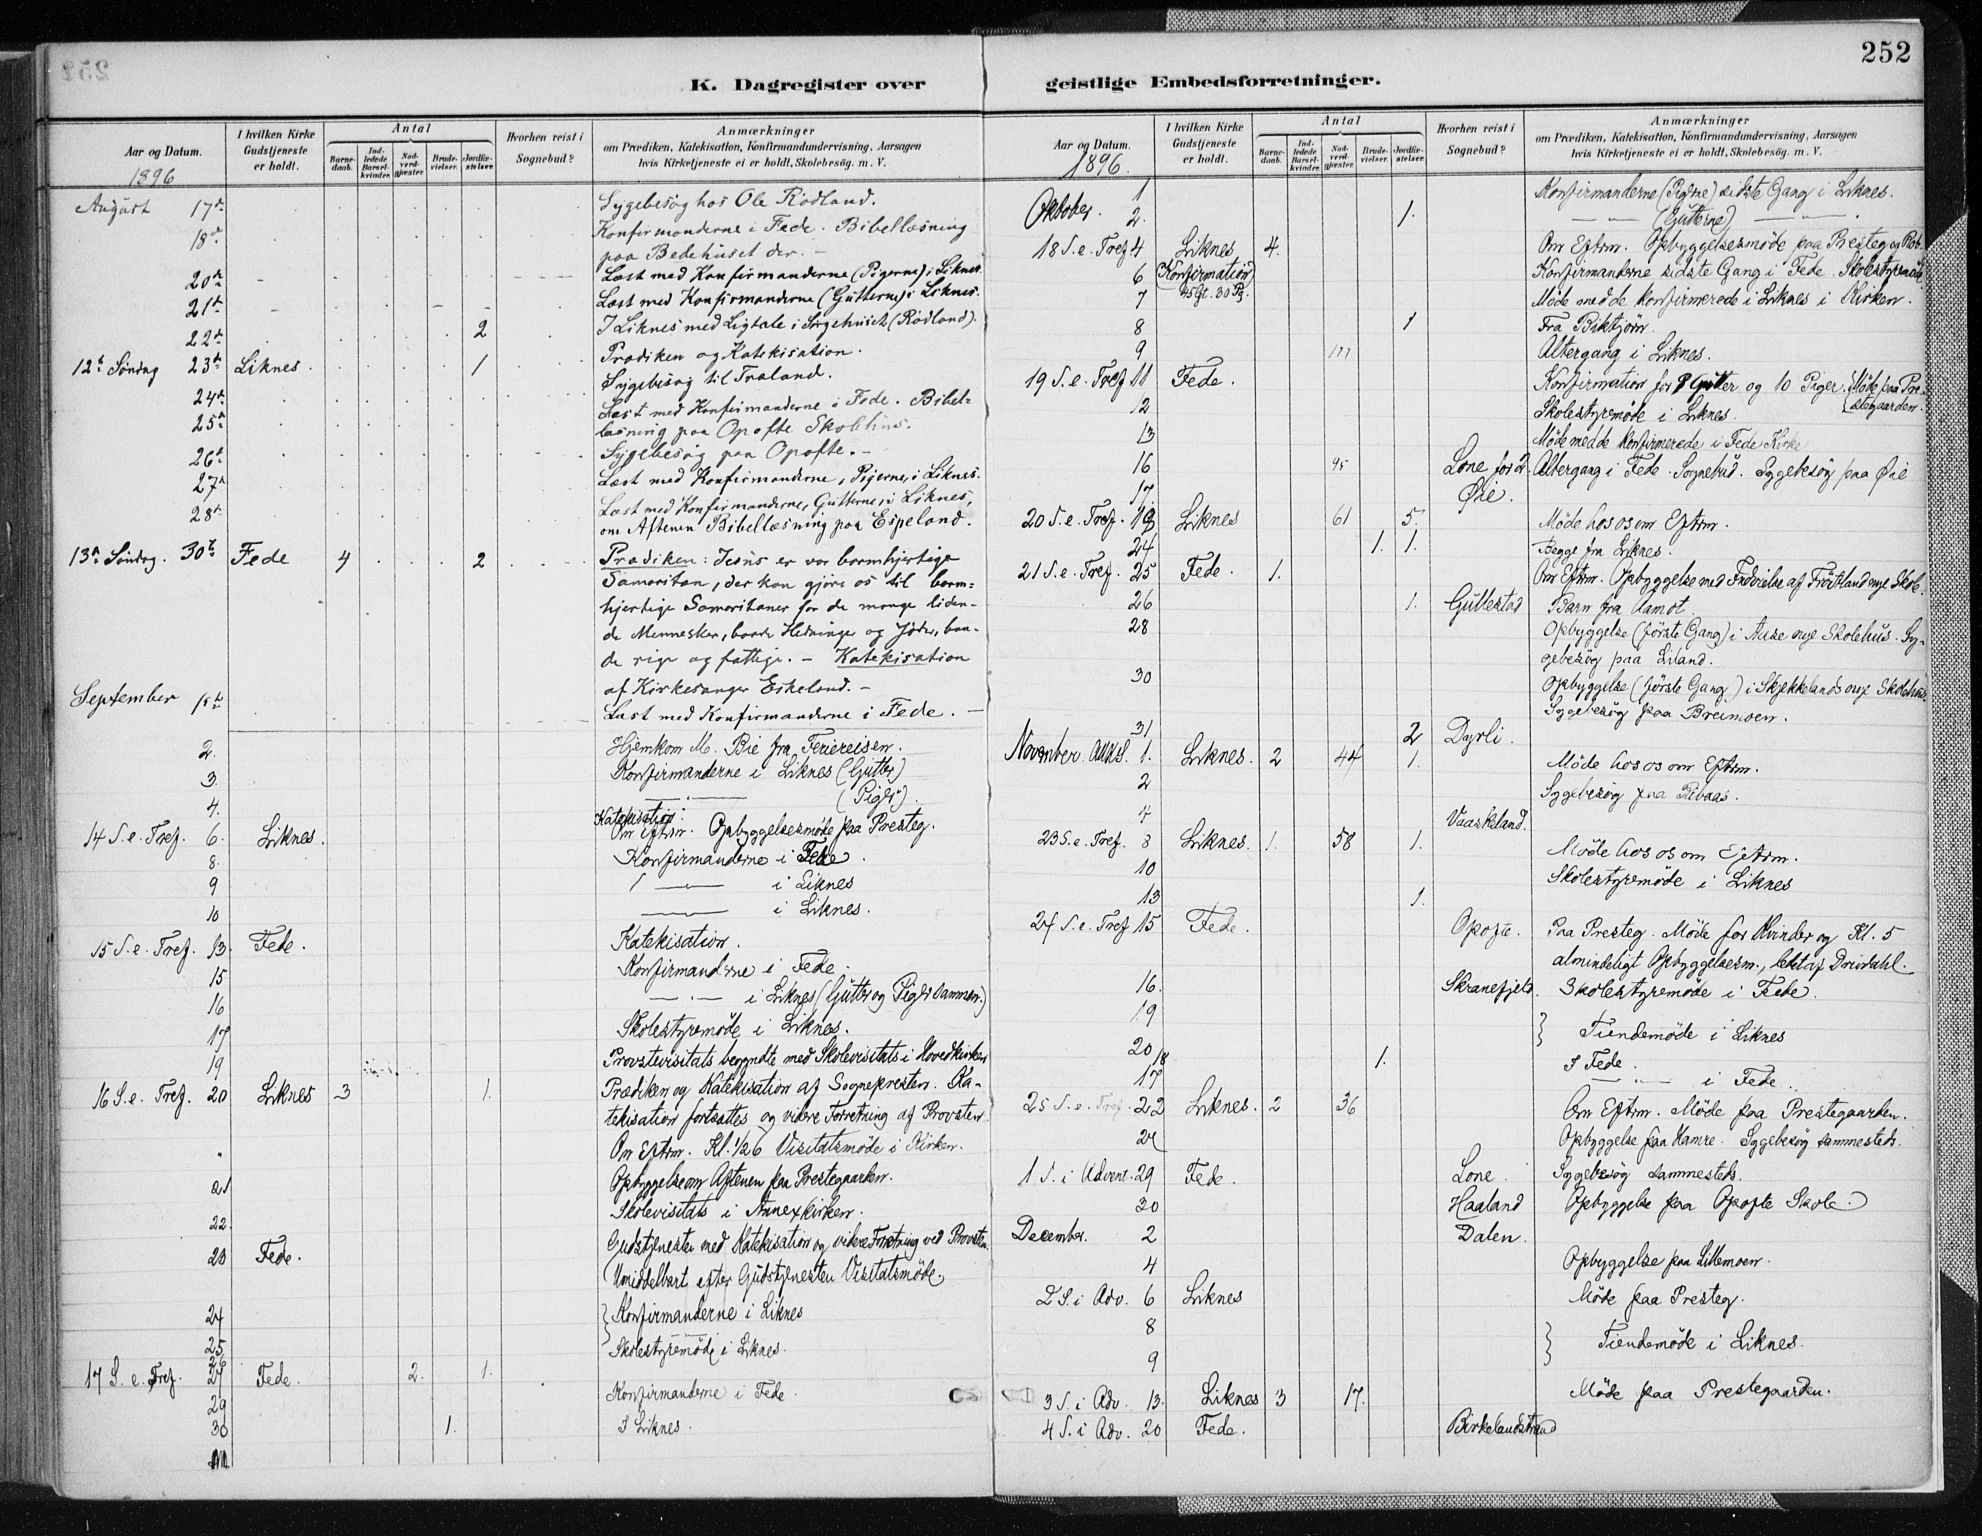 252
K. Dagregister over
geistlige Embedsforretninger.
Aar og Datum.
I hvilken Kirke Gudstjeneste er holdt.
Antal
Barnedaab.
Indledede Barselkvinder.
Nadverdgjæster.
Brudevielser.
Jordfæstelser.
Hvorhen reist i Sognebud?
Anmærkninger
om Prædiken, Katekisation, Konfirmandundervisning, Aarsagen
hvis Kirketjeneste ei er holdt, Skolebesøg. m. V.
1896
August 17de Sygebesøg hos Ole Rödland.
18de Konfirmanderne i Fede. Bibellæsning
paa Bedehuset der. —
20de Læst med Konfirmanderne (Pigerne) i Liknes.
21de Læst med Konfirmanderne (Gutterne) i Liknes.
22de 2 I Liknes med Ligtale i Sørgehuset (Rödland).
12te Söndag 23de Liknes. 1 Prædiken og Katekisation.
Sygebesøg til Træland.
24de Læst med Konfirmanderne i Fede. Bibel-
25de læsning paa Opofte Skolehus.
26de Sygebesøg paa Opofte. —
27de Læst med Konfirmanderne, Pigerne, i Liknes.
28de Læst med Konfirmanderne, Gutterne, i Liknes,
om Aftenen Bibellæsning paa Espeland.
13de Söndag. 30te Fede 4 2 Prædiken: Jesus er vor barmhjertige
Samaritan, der kan gjøre os til barm-
hjertige Samaritaner for de mange liden-
de Mennesker, baade Hedninge og Jøder, baa-
de rige og fattige. — Katekisation
af Kirkesanger Eskeland. —
September 1ste Læst med Konfirmanderne i Fede. —
2. Hjemkom M. Bie fra Feriereisen.
3. Konfirmanderne i Liknes (Gutter)
4. — (Piger).
Katekisation:
14 S. e. Tref. 6. Liknes. Om Eftrm. Opbyggelsesmøde paa Presteg.
8. Konfirmanderne i Fede.
9 — i Liknes
10 — i Liknes.
15 S. e. Tref. 13. Fede. Katekisation.
15 Konfirmanderne i Fede.
16 — i Liknes (Gutter og Piger sammen.)
17 Skolestyremöde i Liknes.
19 Provstevisitats begyndte med Skolevisitats i Hovedkirken
16 S. e. Tref. 20 Liknes 3 1. Prædiken og Katekisation af Sognepresten. Ka-
tekisation fortsattes og videre Forretning af Provsten.
Om Eftrm. Kl. 1/2 6 Visitatsmöde i Kirken.
21 Opbyggelse om Aftenen paa Prestegaarden.
22. Skolevisitats i Annexkirken.
23 Fede. Gudstjeneste med Katekisation og videre Forretning ved Provsten.
Umiddelbart efter Gudstjenesten Visitatsmöde.
24 Konfirmanderne i Liknes
25
26 Skolestyremöde i Liknes.
17 S. e. Tref. 27 Fede. 2. 1.
29 Konfirmanderne i Fede.
30 1. I Liknes.
Aar og Datum.
I hvilken Kirke Gudstjeneste er holdt.
Antal
Barnedaab.
Indledede Barselkvinder.
Nadverdgjæster.
Brudevielser.
Jordfæstelser.
Hvorhen reist i Sognebud?
Anmærkninger
om Prædiken, Katekisation, Konfirmandundervisning, Aarsagen
hvis Kirketjeneste ei er holdt, Skolebesøg. m. V.
1896.
Oktober. 1 Konfirmanderne (Pigerne) sidste Gang i Liknes.
2. 1. — (Gutterne) —
18 S. e. Tref. 4 Liknes 4. Om Eftrm. Opbyggelsesmøde paa Presteg.
6 (Konfirmation) Konfirmanderne sidste Gang i Fede. Skolestyremöde
7 30 Pg. Möde med de konfirmerede i Liknes i Kirken.
8 1 Fra Biktjørn.
9 177 Altergang i Liknes.
19 S. e. Tref 11 Fede. Konfirmation for 9 Gutter og 10 Piger. Möde paa Pre-
stegaarden.
12 Skolestyremöde i Liknes.
13 Möde med de konfirmerede i Fede Kirke
16 95 Lone for 2. Altergang i Fede. Sognebud. Sygebesög paa Öie
17 Öie.
20 S. e. Tref. 18 Liknes 61 5. Möde hos os om Eftrm.
24 1. 1. Begge fra Liknes.
21 S. e. Tref. 25 Fede. 1. Om Eftrm. Opbyggelse med Indvielse af Fröitland nye Skole.
26 1. Gullestad Barn fra Aamot.
28 Opbyggelse (förste Gang) i Ause nye Skolehus. Sy-
gebesög paa Liland.
30 Opbyggelse (förste Gang) i Skjekkelands nye Skolehus.
Sygebesög paa Breimoen.
31 2 Dyrli.
November. Allhsl. 1. Liknes. 2 44 1. Möde hos os om Eftrm.
2 Sygebesög paa Rebaas.
4 Vaaskeland.
23 S. e. Tref. 8 Liknes. 1. 58 1. Möde hos os om Eftrm.
10 Skolestyremöde i Liknes
13 1.
24 S. e. Tref 15 Fede. Opofte. Paa Presteg. Möde for Kvinder og Kl. 5
almindeligt Opbyggelsesm.,
16. Skranefjeld. Skolestyremöde i Fede.
19 Tiendemöde i Liknes
20
18 1. I Fede.
17 — i Fede.
25 S. e. Tref. 22 Liknes. 2 36 Om Eftrm. Möde paa Prestegaarden.
24 Opbyggelse paa Hamre. Sygebesög sammesteds.
1 S. i Advent. 29 Fede. Lone. Sygebesög sammesteds.
30 Haaland Opbyggelse paa Opofte Skole.
December. 2 Dalen.
4 Opbyggelse paa Lillemoen.
2 S. i Adv. 6 Liknes Möde paa Presteg.
8 Tiendemöde i Liknes.
9
3 S. i Adv. 13. Liknes 3 17. Möde paa Prestegaarden.
4 S. i Adv. 20 Fede. Birkelandstrand